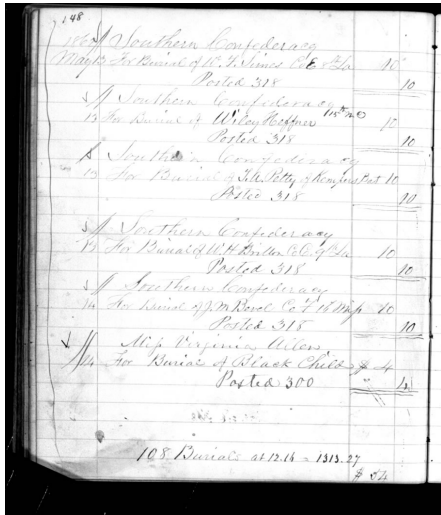 148
186 Southern Confederacy
May 13 For Burial of W. F. Simes Co E 8th La 10
Posted 318 10
Southern Confederacy
13 For Burial of Wiley Heffner 10
Posted 318 10
Southern Confederacy
13 For Burial of Petty of Kempers Bat 10
Posted 318 10
Southern Confederacy
13 For Burial of W. H. Co C. 9th La 10
Posted 318 10
Southern Confederacy
14 For Burial of J. M. Co 16 Miss 10
Posted 318 10
Miss Virginia
14 For Burial of Black Child $ 4
Posted 300 4
108 Burials at 12.16 = 1313.27
$ 54